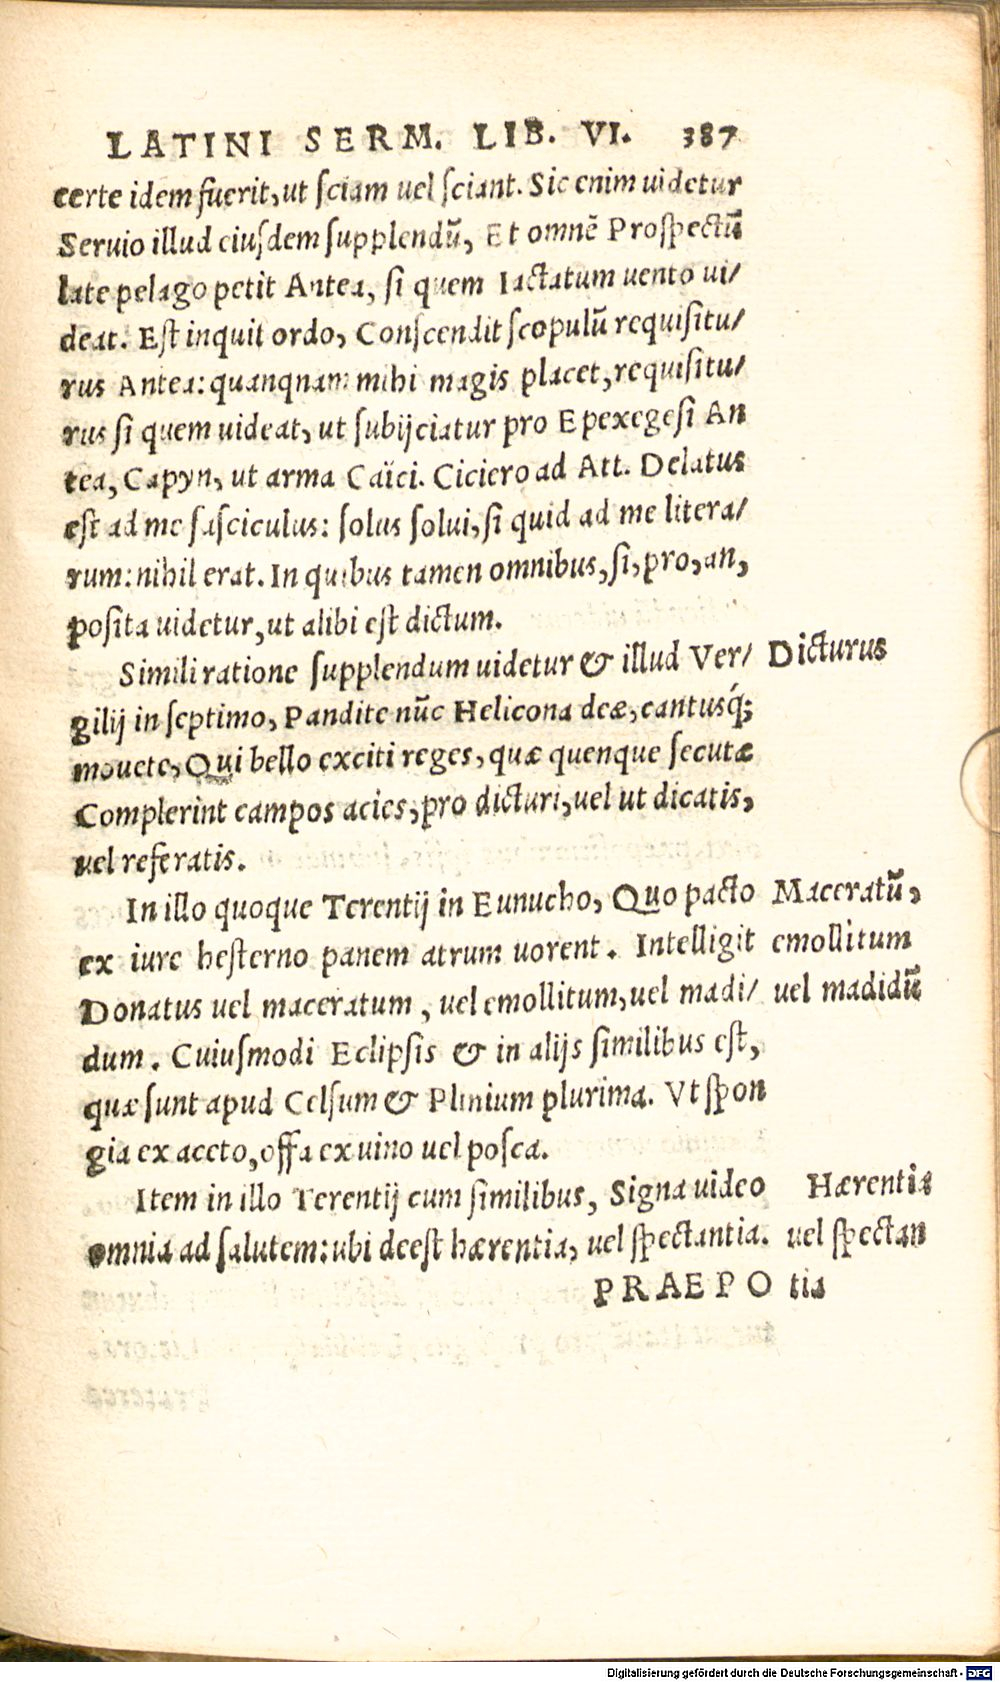 LATINI SERM. LIB. VI. 387
certe idem fuerit, ut sciam uel sciant. Sic enim uidetur
Seruio illud eiusdem supplendũ, Et omnẽ Prospectũ
late pelago petit Antea, si quem Iactatum uento ui/
deat. Est inquit ordo, Conscendit scopulũ requisitu/
rus Antea: quanqnam mihi magis placet, requisitu/
rus si quem uideat, ut subijciatur pro Epexegesi An
tea, Capyn, ut arma Caïci. Ciciero ad Att. Delatus
est ad me fasciculus: solus solui, si quid ad me litera/
rum: nihil erat. In quibus tamen omnibus, si, pro, an,
posita uidetur, ut alibi est dictum.
Simili ratione supplendum uidetur & illud Ver/ Dicturus
gilij in septimo, Pandite nũc Helicona deæ, cantusq́;
mouete, Qui bello exciti reges, quæ quenque secutæ
Complerint campos acies, pro dicturi, uel ut dicatis,
uel referatis.
In illo quoque Terentij in Eunucho, Quo pacto Maceratũ,
ex iure hesterno panem atrum uorent. Intelligit emollitum
Donatus uel maceratum, uel emollitum, uel madi/ uel madidũ
dum. Cuiusmodi Eclipsis & in alijs similibus est,
quæ sunt apud Celsum & Plinium plurima. Vt spon
gia ex aceto, offa ex uino uel posca.
Item in illo Terentij cum similibus, Signa uideo Hærentia
omnia ad salutem: ubi deest hærentia, uel spectantia. uel spectan
PRAEPO tia
Digitalisierung gefördert durch die Deutsche Forschungsgemeinschaft - DFG